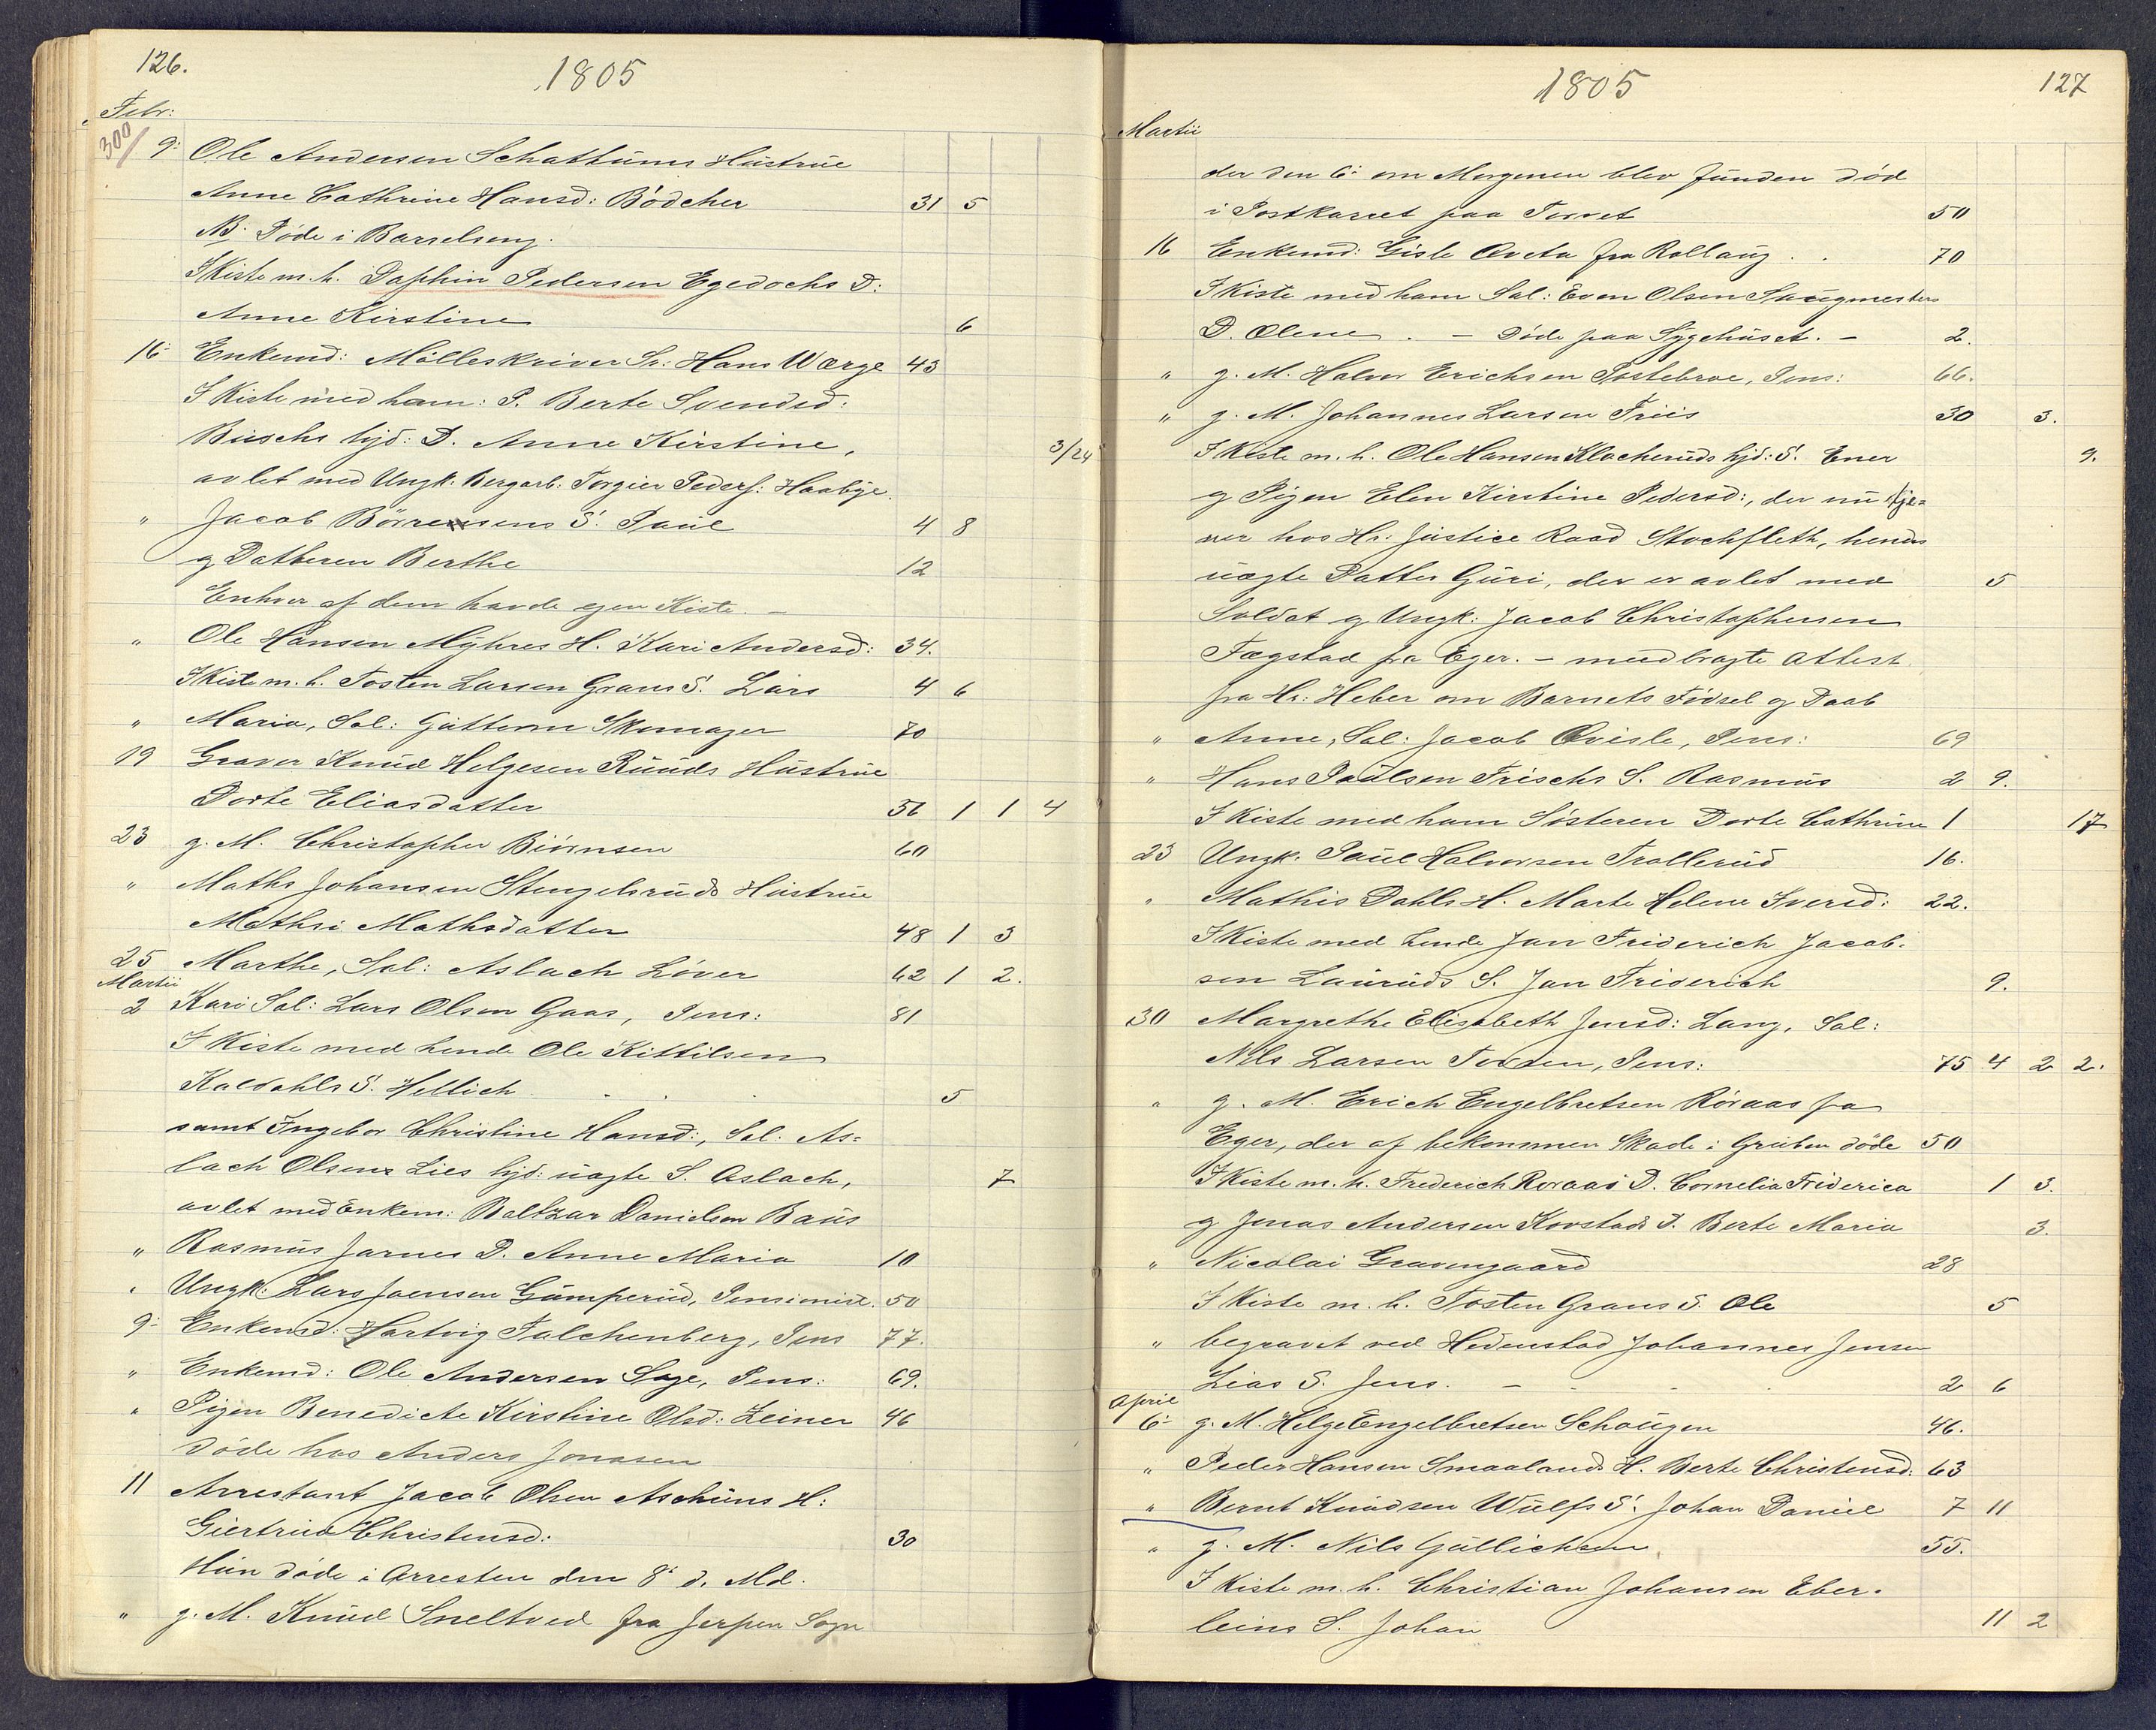 126.
1805
Febr:
300/
9: Ole Andersen Schattums Hustrue
Anne Cathrine Hansd: Bödcher 31 5
NB. Döde i Barselseng.
I Kiste m. h. Daphin Pedersen Egedochs D:
Anne Kirstine 6
16: Enkemd: Mölleskriver Sr: Hans Wærge 43
I Kiste med ham: P. Berte Svendsd:
Buschs hjd: D. Anne Kirstine, 3/24
avlet med Ungk. Bergarb. Torgier Peders: Haabye.
" Jacob Börresens S. Paul 4 8
g Datteren Berthe 12
Enhver af dem havde egen Kiste. —
" Ole Hansen Myhres H. Kari Andersd: 34.
I Kiste m. h. Tosten Larsen Graus S. Lars 4 6
" Maria, Sal: Guttorm Skomager 70
19 Graver Knud Helgesen Ruuds Hustrue
Dorte Eliasdatter 56 1 1 4
23 g. M. Christopher Biörnsen 60
" Maths Johansen Stengelsruds Hustrue
Mathri Mathsdatter 48 1 3
25 Marthe, Sal: Aslach Löver 62 1 2.
Martii
2 Kari Sal: Lars Olsen Gaas, Pens: 81
I Kiste med hende Ole Kittilsen
Kaldahls S. Hellich . . . 5
samt Ingebor Christine Hansd:, Sal: As=
lach Olsens Lies hjd: uægte S. Aslach, 7
avlet med Enkem: Baltzar Danielsen Baus
" Rasmus Jarnes D. Anne Maria 10
" Ungk: Lars Joensen Gamperud, Pensionist. 50
9: Enkemd: Hartvig Falchenberg, Pens 77.
" Enkemd: Ole Andersen Sage, Pens: 69.
" Pigen Benedicte Kirstine Olsd: Zeiner 46
döde hos Anders Jonasen
11 Arrestant Jacob Olsen Aschims H:
Giertrud Christensd: 30
Hun döde i Arresten den 8: d. Md.
" g. M. Knud Sneltved fra Jerpen Sogn
1805
127
Martii
der den 6: om Morgenen blev funden död
i Postkarret paa Torvet 50
16 Enkemd: Gisle Qveta fra Rollaug . . 70
I Kiste med ham Sal: Even Olsen Saugmesters
D. Olene . — Döde paa Sygehuset. — 2.
" g. M. Halvor Erichsen Postebroe, Pens: 66.
" g. M. Johannes Larsen Friis 30 3.
I Kiste m. h. Ole Hansen Klocheruds hjd: S. Ener 9.
g Pigen Elen Kirstine Pedersd:, der nu tje=
ner hos Hr: Justice Raad Stochfleth, hendes
uægte Datter Guri, der er avlet med 5
Soldat g Ungk: Jacob Christophersen
Fægstad fra Eger. — medbragte Attest
fra Hr: Heber om Barnets Födsel og Daab
" Anne, Sal: Jacob Qvisle, Pens: 69
" Hans Paulsen Frischs S. Rasmus 2 9.
I Kiste med ham Sösteren Dorte Cathrine 1 17
23 Ungk. Paul Halvorsen Trollerud 16.
" Mathis Dahls H. Marte Helene Iversd: 22.
I Kiste med hende Jan Friderich Jacob-
sen Lauruds S. Jan Friderich 9.
30 Margrethe Elisabeth Jensd: Lang, Sal:
Nils Larsen Torsen, Pens: 75 4 2 2.
" g. M. Erich Engelbretsen Röraas fra
Eger, der af bekommen Skade i Gruben döde 50
I Kiste m. h. Frederich Roraas D. Cornelia Friderica 1 3.
g Jonas Andersen Korstads D. Berte Maria 3.
" Nicolai Gravengaard 28
I Kiste m. h. Tosten Graus S. Ole 5
" begravet ved Hedenstad Johannes Jensen
Lias S. Jens. — . . . 2 6
April
6: g. M. Helge Engelbretsen Schougen 46.
" Peder Hansen Smaalands H. Berte Christensd: 63
" Bernt Knudsen Wulfs S. Johan Daniel 7 11
" g. M. Nils Gullichsen 55.
I Kiste m. h. Christian Johansen Eber-
leins S. Johan 11 2